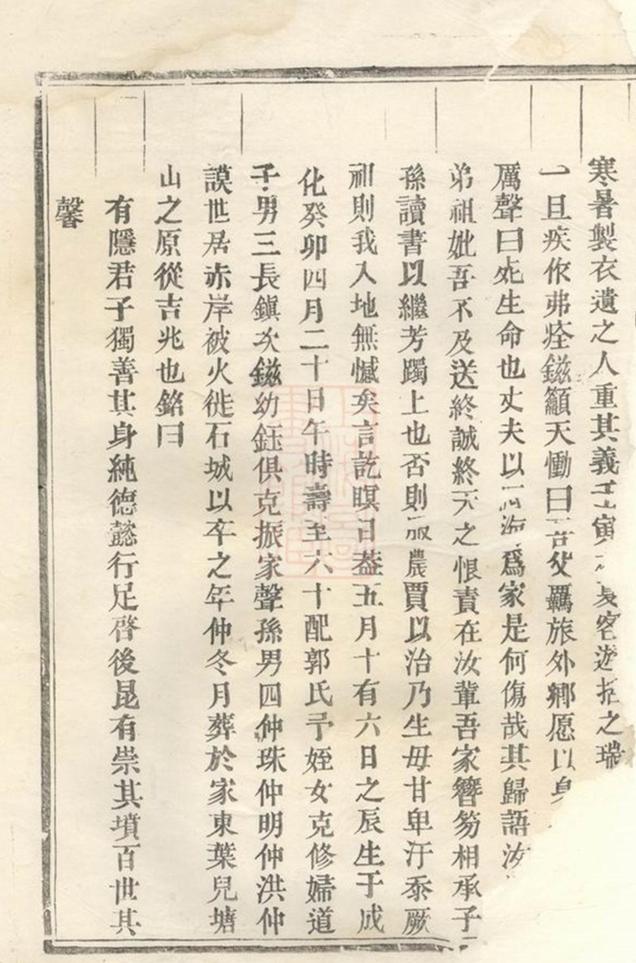 寒暑製衣遺之人重其義壬寅長客遊抵之瑞
一旦疾作弗痊鎡籲天慟曰吾父羈旅外鄉愿以身
厲聲曰死生命也丈夫以四海爲家是何傷哉其歸語汝
弟祖妣吾不及送終誠終天之恨責在汝輩吾家簪笏相承子
孫讀書以繼芳躅上也否則服農賈以治乃生毋甘卑汙忝厥
祖則我入地無憾矣言訖瞑目葢五月十有六日之辰生于成
化癸卯四月二十日午時壽至六十配郭氏予姪女克修婦道
子男三長鎮次鎡幼鈺俱克振家聲孫男四仲珠仲明仲洪仲
謨世居赤岸被火徙石城以卒之年仲冬月葬於家東葉兒塘
山之原從吉兆也銘曰
有隱君子獨善其身純德懿行足啓後昆有崇其墳百世其
馨